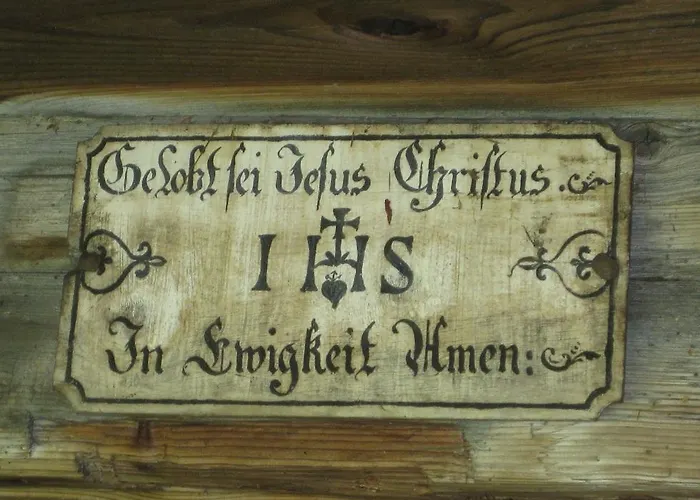 Gelobt sei Jesus Christus.
IHS
In Ewigkeit Amen: